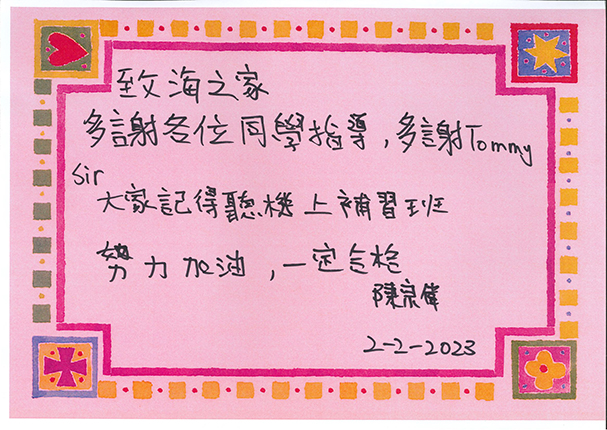 致海之家
多謝各位同學指導，多謝Tommy
Sir
大家記得聽機上補習班
努力加油，一定合格
陳宗偉
2-2-2023